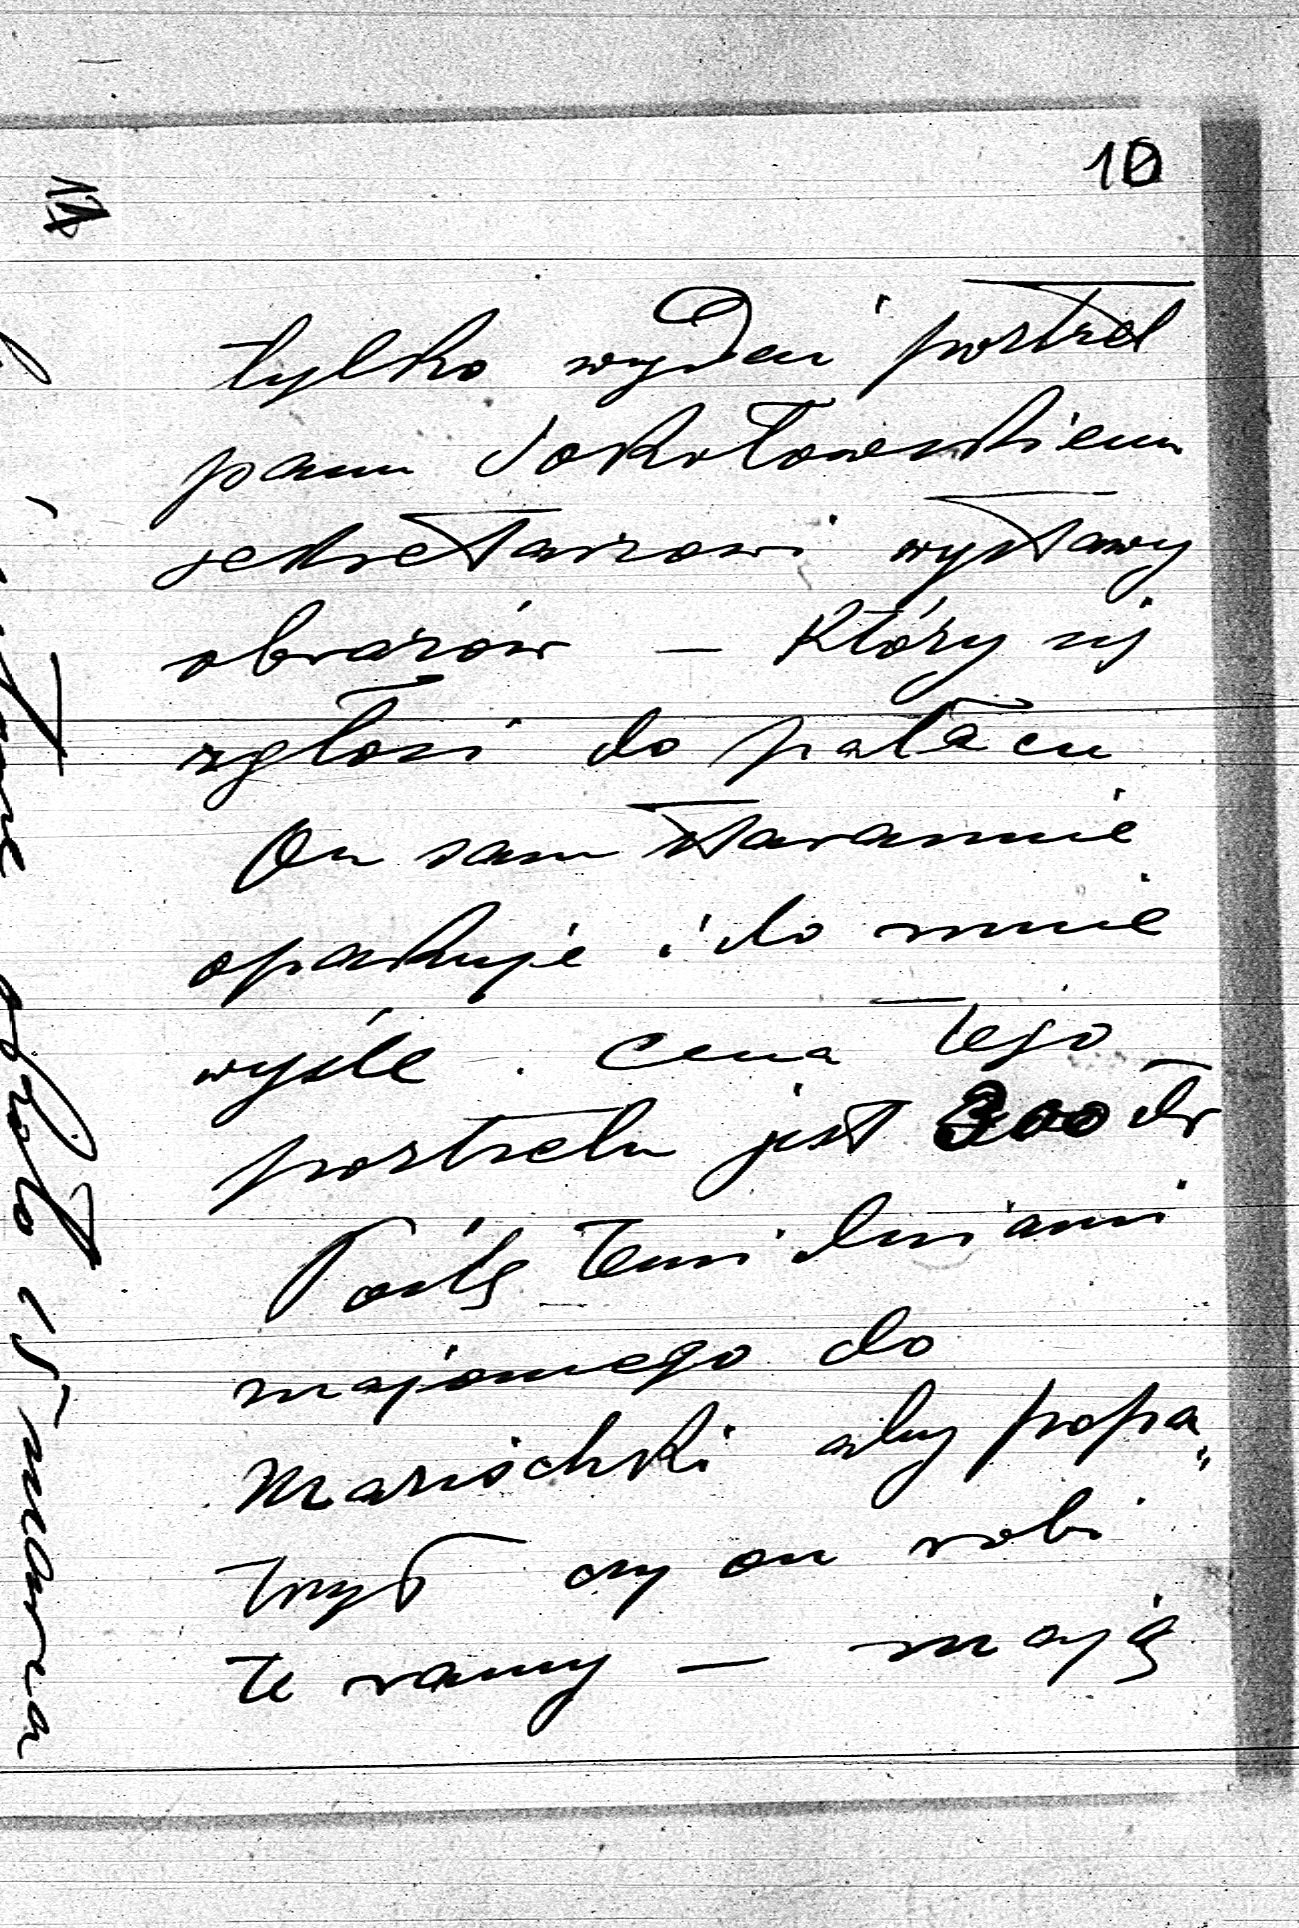 10
tylko wydać portret
panu Sokołowskiemu
sekretarzowi wystawy
obrazów — który się
zgłosi do pałacu
On sam starannie
opakuje i do mnie
wyśle. Cena tego
portretu jest 300 złr
Poślę temi dniami
znajomego do
Marischki aby popa„
trzył czy on robi
te ramy — mają
11
około 15